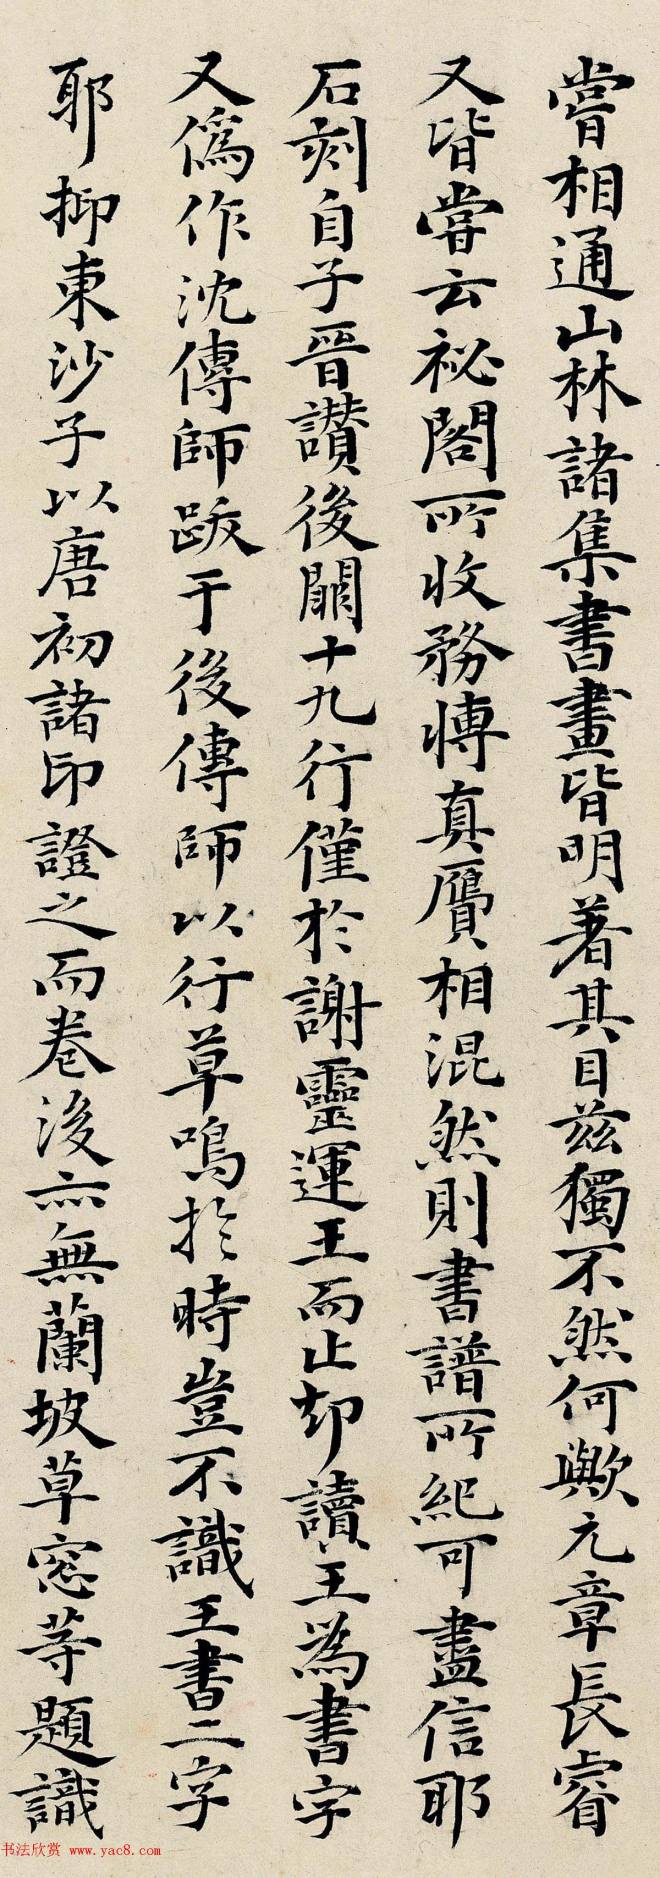 嘗相通山林諸集書畫皆明著其目茲獨不然何歟元章長睿
又皆嘗云祕閣所收務博真贋相混然則書譜所紀可盡信耶
石刻自子晉讚後闕十九行僅於謝靈運王而止却讀王為書字
又僞作沈傳師跋于後傳師以行草鳴於時豈不識王書二字
耶抑東沙子以唐初諸印證之而卷後亦無蘭坡草窓等題識
书法欣赏 www.yac8.com